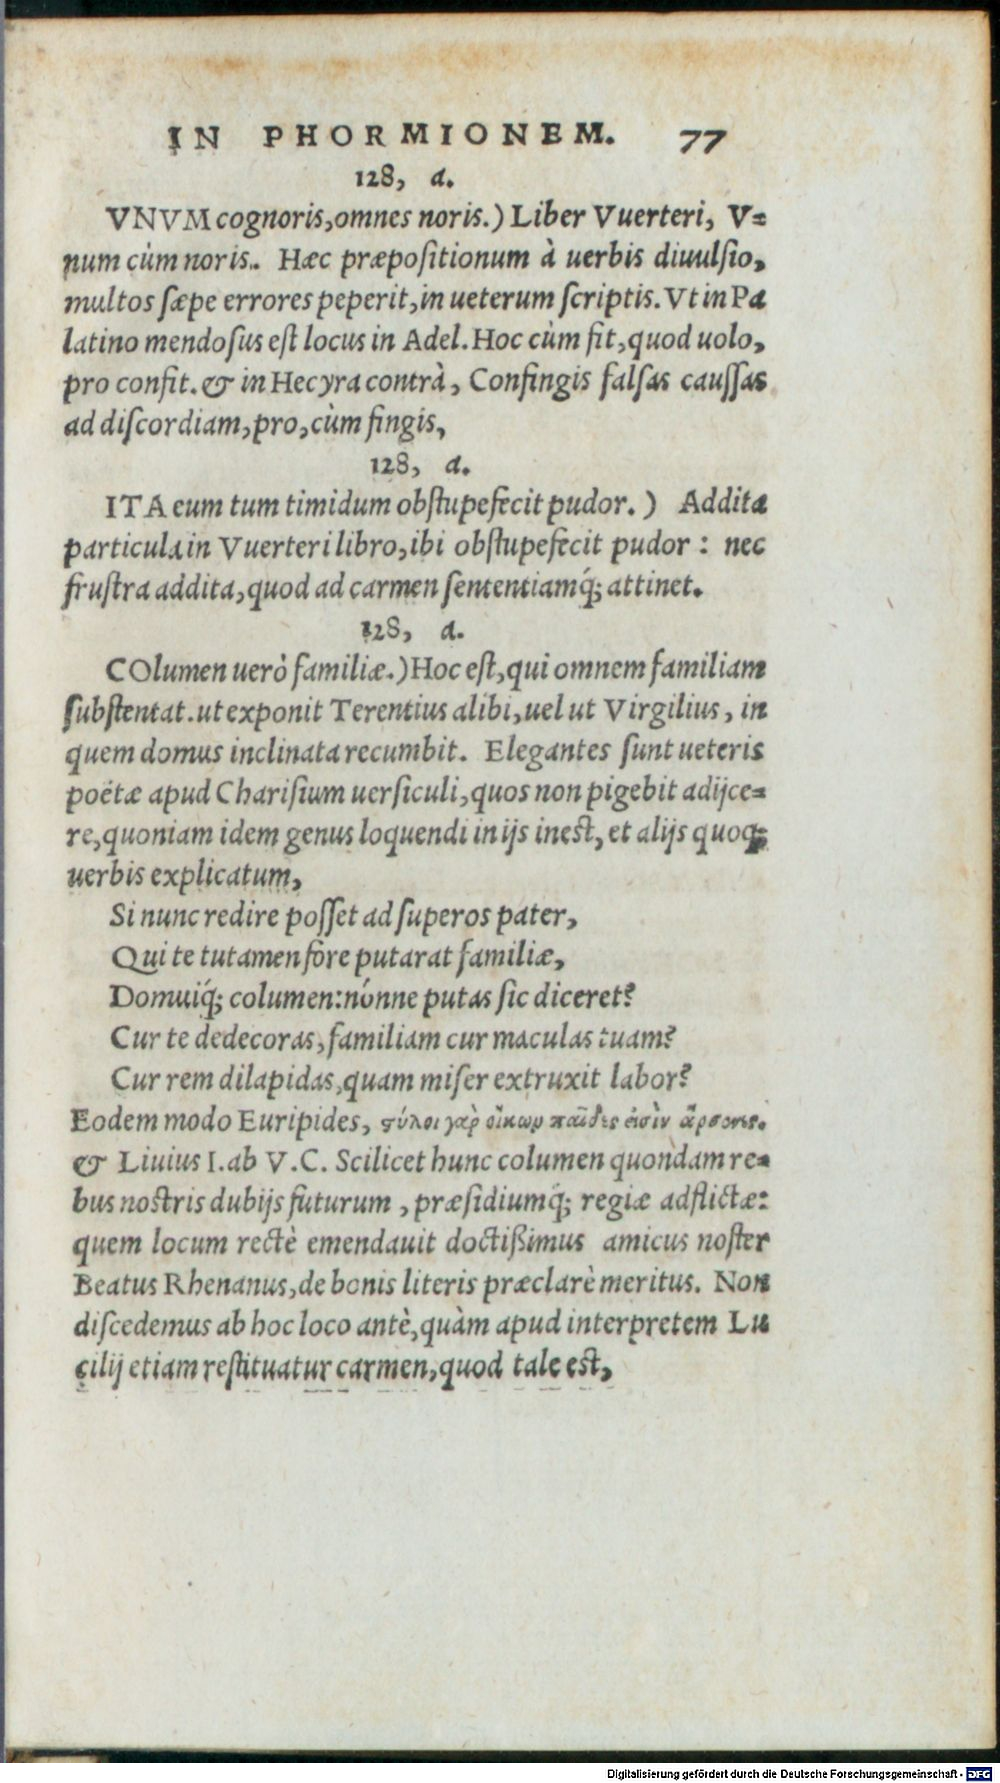 IN PHORMIONEM. 77
128, a.
VNVM cognoris, omnes noris.) Liber Vuerteri, V=
num cùm noris. Hæc præpositionum à uerbis diuulsio,
multos sæpe errores peperit, in ueterum scriptis. Vt in Pa
latino mendosus est locus in Adel. Hoc cùm fit, quod uolo,
pro confit. & in Hecyra contrà, Confingis falsas caussas
ad discordiam, pro, cùm fingis,
128, a.
ITA eum tum timidum obstupefecit pudor.) Addita
particula in Vuerteri libro, ibi obstupefecit pudor: nec
frustra addita, quod ad carmen sententiamq́; attinet.
128, a.
COlumen uerò familiæ.) Hoc est, qui omnem familiam
substentat. ut exponit Terentius alibi, uel ut Virgilius, in
quem domus inclinata recumbit. Elegantes sunt ueteris
poëtæ apud Charisium uersiculi, quos non pigebit adijce=
re, quoniam idem genus loquendi in ijs inest, et alijs quoq;
uerbis explicatum,
Si nunc redire posset ad superos pater,
Qui te tutamen fore putarat familiæ,
Domuiq́; columen: nónne putas sic diceret?
Cur te dedecoras, familiam cur maculas tuam?
Cur rem dilapidas, quam miser extruxit labor?
Eodem modo Euripides, στύλοι γαρ̀ οἴκωρ παῖδες εἰσὶν ἄρσενες.
& Liuius I. ab V.C. Scilicet hunc columen quondam re=
bus nostris dubijs futurum, præsidiumq́; regiæ adflictæ:
quem locum rectè emendauit doctißimus amicus noster
Beatus Rhenanus, de bonis literis præclarè meritus. Non
discedemus ab hoc loco antè, quàm apud interpretem Lu
cilij etiam restituatur carmen, quod tale est,
Digitalisierung gefördert durch die Deutsche Forschungsgemeinschaft - DFG